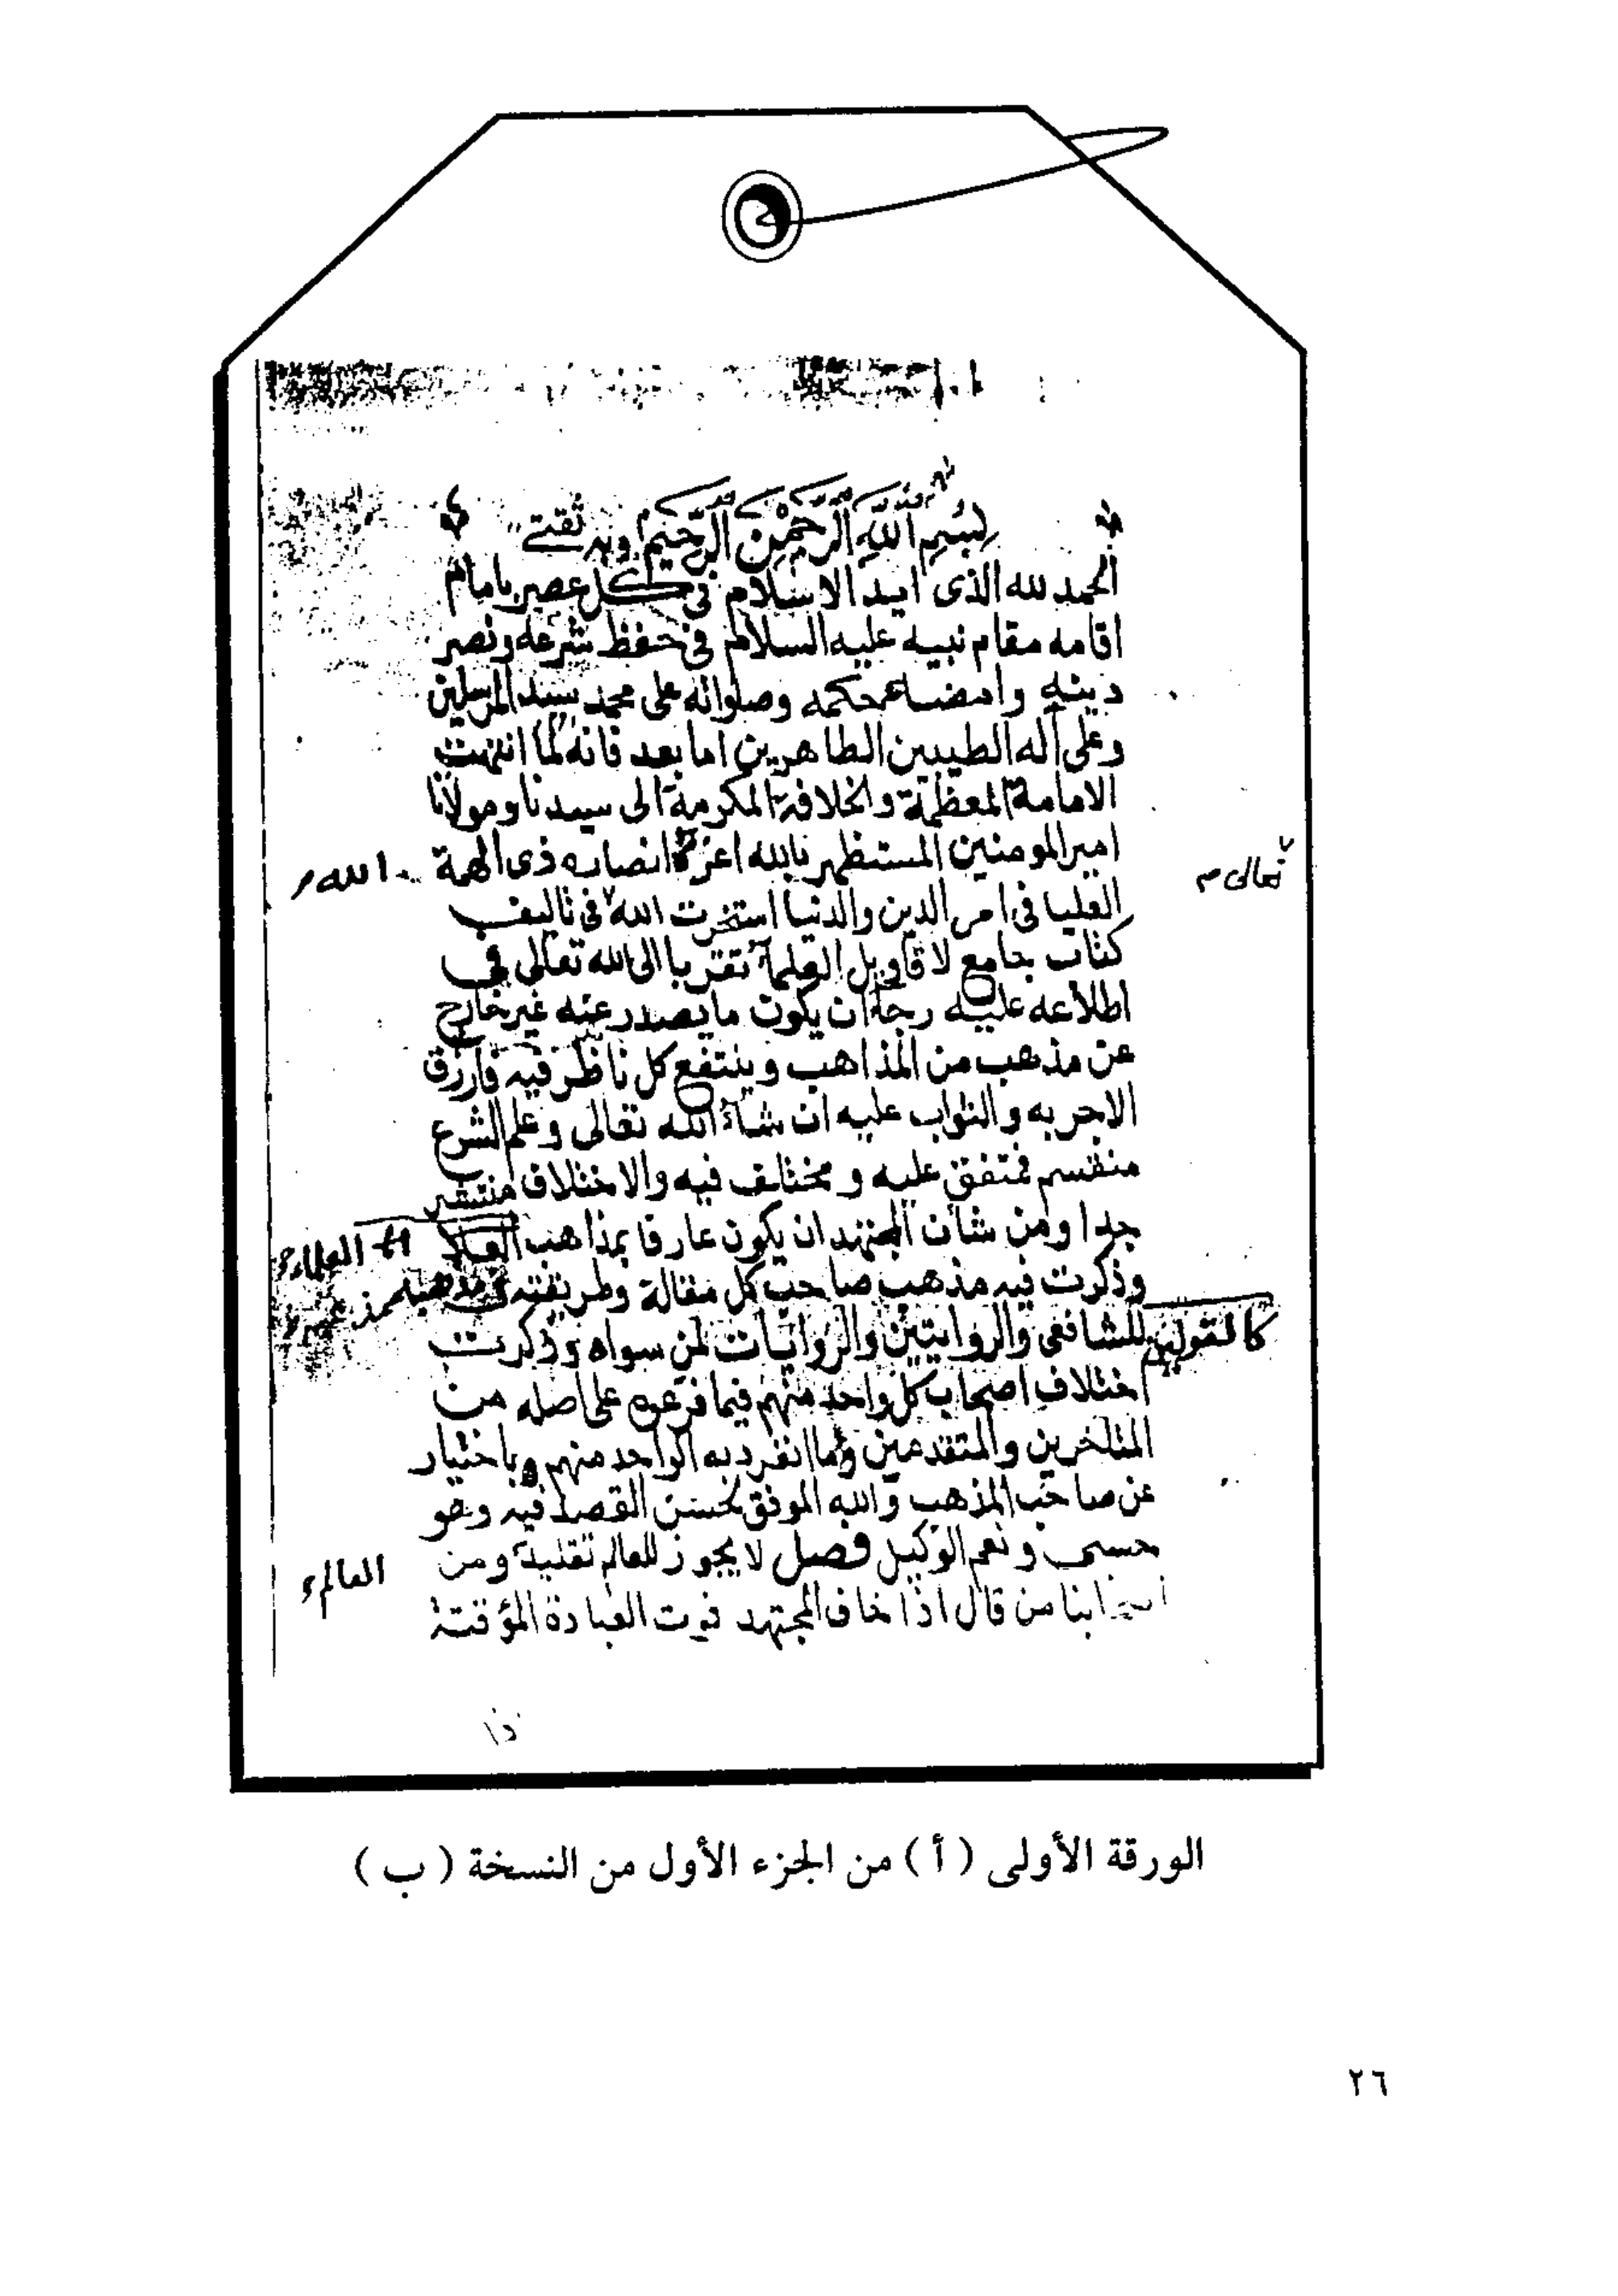 بسم الله الرحمن الرحيم وبه ثقتي
الحمد لله الذى ايد الاسلام فى كل عصر بامام
اقامه مقام نبيه عليه السلام فى حفظ شرعه ونصر
دينه وامضاء حكمه وصلواته على محمد سيد المرسلين
وعلى آله الطيبين الطاهرين اما بعد فانه لما انتهت
الامامة المعظمة والخلافة المكرمة الى سيدنا ومولانا
امير المومنين المستظهر بالله اعز انصاره ذى الهمة
الله
تعالى
العليا فى امر الدين والدنيا استخرت الله فى تاليف
كتاب جامع لاقاويل العلماء تقربا الى الله تعالى فى
اطلاعه عليه رجاء ان يكون ما يصدر عنه غير خارج
عن مذهب من المذاهب وينتفع كل ناظر فيه فارزق
الاجر به والثواب عليه ان شاء الله تعالى وعلم الشرع
منقسم فمتفق عليه ومختلف فيه والاختلاف منتشر
جدا ومن شان المجتهد ان يكون عارفا بمذاهب
العلماء
وذكرت فيه مذهب صاحب كل مقالة وطريقته
كالقولين للشافعى والروايتين والروايات لمن سواه وذكرت
اختلاف اصحاب كل واحد منهم فيما فرعوه على اصله من
المتاخرين والمتقدمين وما انفرد به الواحد منهم وباختيار
عن صاحب المذهب والله الموفق لحسن القصد فيه وهو
حسبى ونعم الوكيل فصل لا يجوز للعالم تقليد ومن
العالم
اصحابنا من قال اذا خاف المجتهد فوت العبادة المؤقتة
الورقة الأولى ( أ ) من الجزء الأول من النسخة ( ب )
٢٦